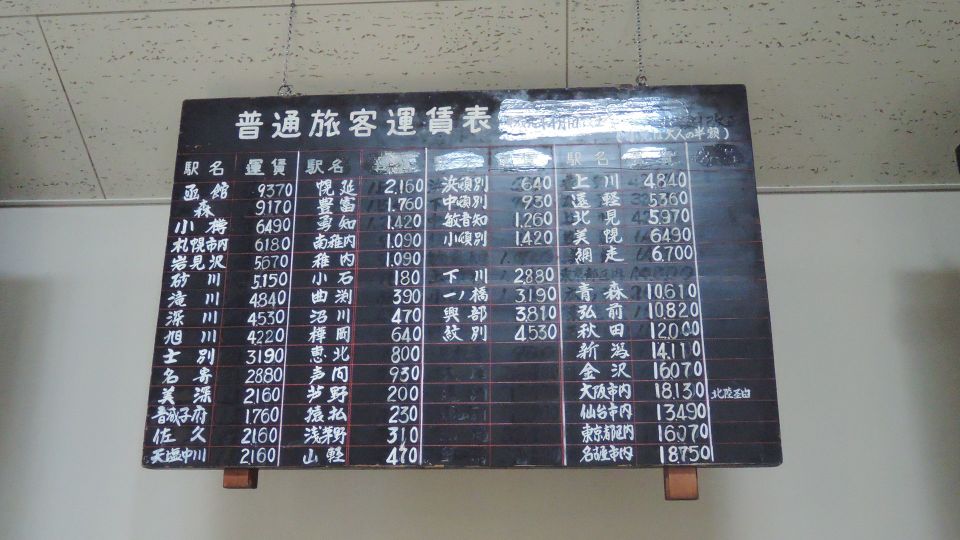 普通旅客運賃表
大人の半額)
駅名 運賃 駅名 駅名
函館 9370 幌延 2,160 浜頓別 640 上川 4,840
森 9170 豊富 1,760 中頓別 930 遠軽 5,360
小樽 6490 勇知 1,420 敏音知 1,260 北見 5,970
札幌市内 6180 南稚内 1,090 小頓別 1,420 美幌 6,490
岩見沢 5,670 稚内 1,090 網走 6,700
砂川 5,150 小石 180 下川 2,880
滝川 4,840 曲渕 390 一ノ橋 3,190 青森 10,610
深川 4,530 沼川 470 興部 3,810 弘前 10,820
旭川 4,220 樺岡 640 紋別 4,530 秋田 12,000
士別 3190 恵北 800 新潟 14,110
名寄 2880 声問 930 金沢 16070
美深 2160 芦野 200 大阪市内 18,130
音威子府 1,760 猿払 230 仙台市内 13490
佐久 2,160 浅茅野 310 東京都区内 16070
天塩中川 2,160 山軽 470 名古屋市内 18750